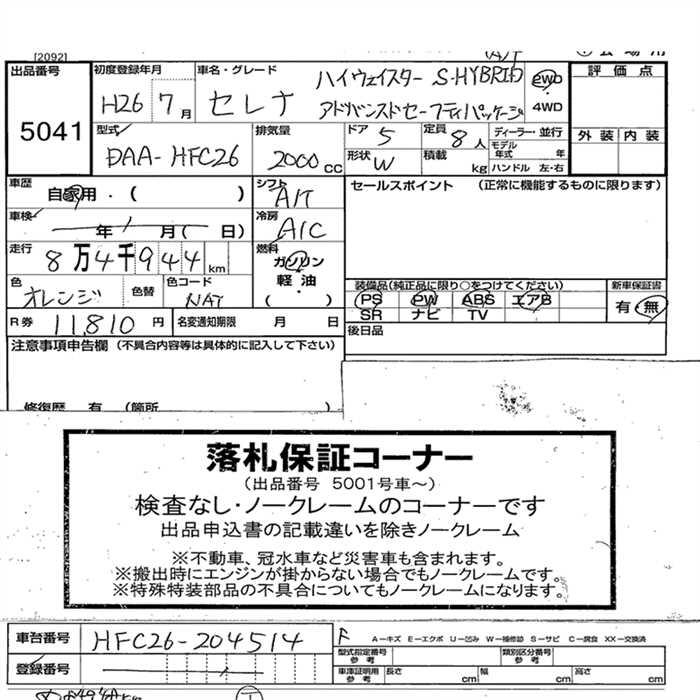 [2092]
出品番号
5041
初度登録年月
H26 7月
車名・グレード
セレナ
ハイウェイスター S-HYBRID
アドバンスドセーフティパッケージ
2WD
4WD
評価点
外装 内装
型式
DAA-HFC26
排気量
2000cc
ドア 5
定員 8人
形状 W
積載 kg
ディーラー・並行
モデル年式 年
ハンドル 左・右
車歴
自家用・( )
シフト
A/T
車検
年 月( 日)
冷房
A/C
走行
8万4千944km
燃料
ガソリン
軽油
( )
色
オレンジ
色替
色コード
NAT
R券 11,810円
名変通知期限 月 日
セールスポイント (正常に機能するものに限ります)
装備品(純正品に限り○をつけてください)
PS PW ABS エアB
SR ナビ TV
新車保証書
有・無
後日品
注意事項申告欄(不具合内容等は具体的に記入して下さい)
修復歴 有 (箇所
落札保証コーナー
(出品番号 5001号車~)
検査なし・ノークレームのコーナーです
出品申込書の記載違いを除きノークレーム
※不動車、冠水車など災害車も含まれます。
※搬出時にエンジンが掛からない場合でもノークレームです。
※特殊特装部品の不具合についてもノークレームになります。
車台番号 HFC26-204514
登録番号
A-キズ E-エクボ U-凹み W-補修跡 S-サビ C-腐食 XX-交換済
型式指定番号 参考
類別区分番号 参考
車庫証明用 参考
長さ cm 幅 cm 高さ cm